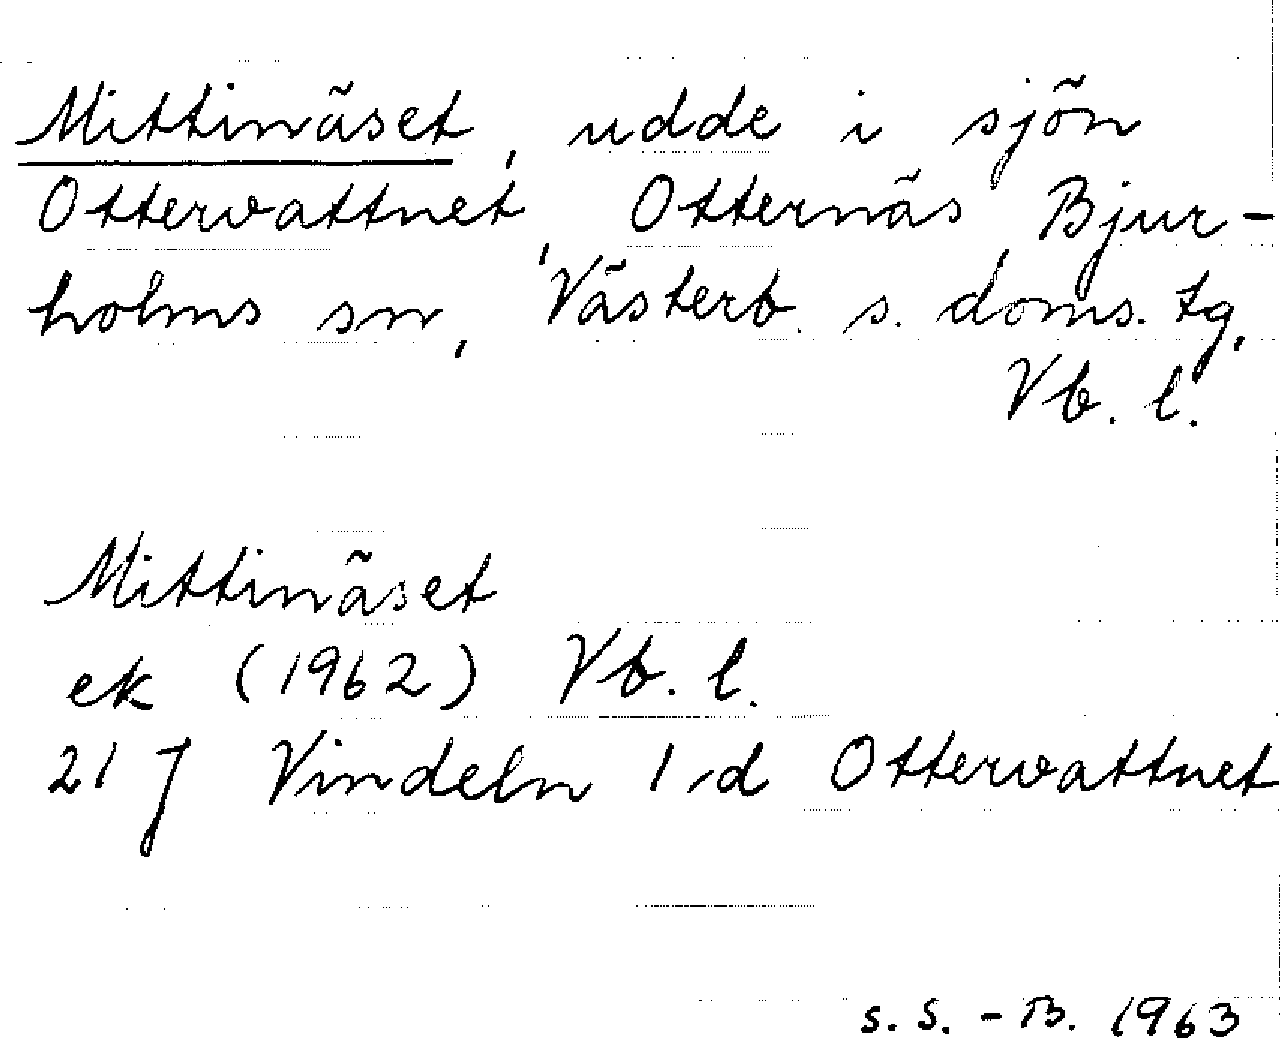 Mittinäset, udde i sjön
Ottervattnet, Otternäs, Bjur-
holms sn, Västerb. s. doms. tg,
Vb. l.
Mittinäset
ek (1962) Vb. l.
21 J Vindeln 1 d Ottervattnet
S. S. - B. 1963